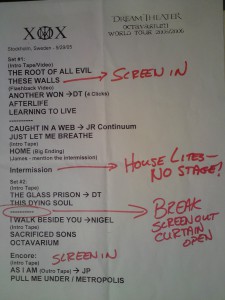 XOX
DREAM THEATER
OCTAVARIUM
WORLD TOUR 2005/2006
Stockholm, Sweden - 9/29/05
Set #1:
(Intro Tape/Video)
THE ROOT OF ALL EVIL
THESE WALLS
SCREEN IN
(Flashback Video)
ANOTHER WON → DT (4 Clicks)
AFTERLIFE
LEARNING TO LIVE
----------
CAUGHT IN A WEB → JR Continuum
JUST LET ME BREATHE
(Intro Tape)
HOME (Big Ending)
(James - mention the intermission)
HOUSE LITES -
NO STAGE?
Intermission
Set #2:
(Intro Tape)
THE GLASS PRISON → DT
THIS DYING SOUL
----------
BREAK
SCREEN OUT
CURTAIN
OPEN
(Intro Tape)
I WALK BESIDE YOU → NIGEL
(Intro Tape)
SACRIFICED SONS
OCTAVARIUM
Encore:
SCREEN IN
(Intro Tape)
AS I AM (Outro Tape) → JP
PULL ME UNDER / METROPOLIS